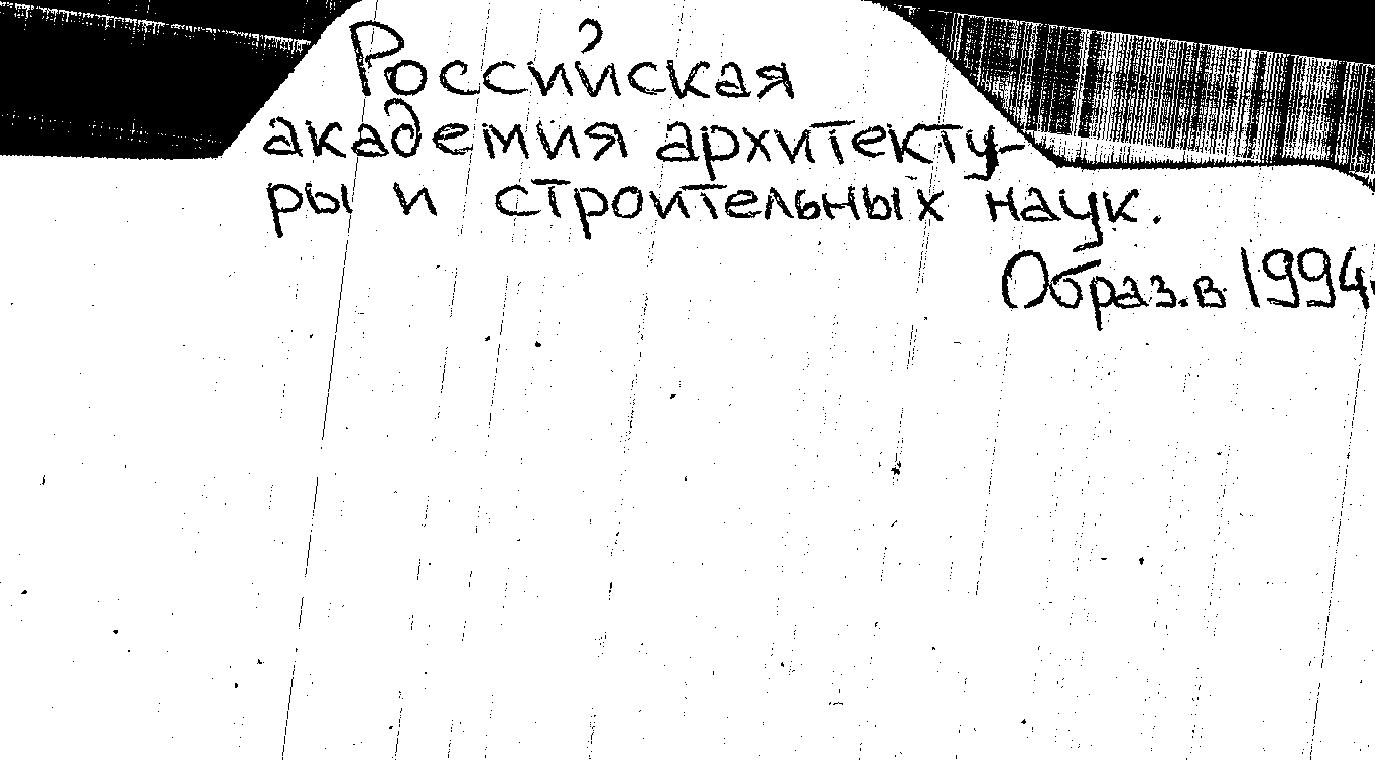 Российская
академия архитекту-
ры и строительных наук.
Образ. в 1994